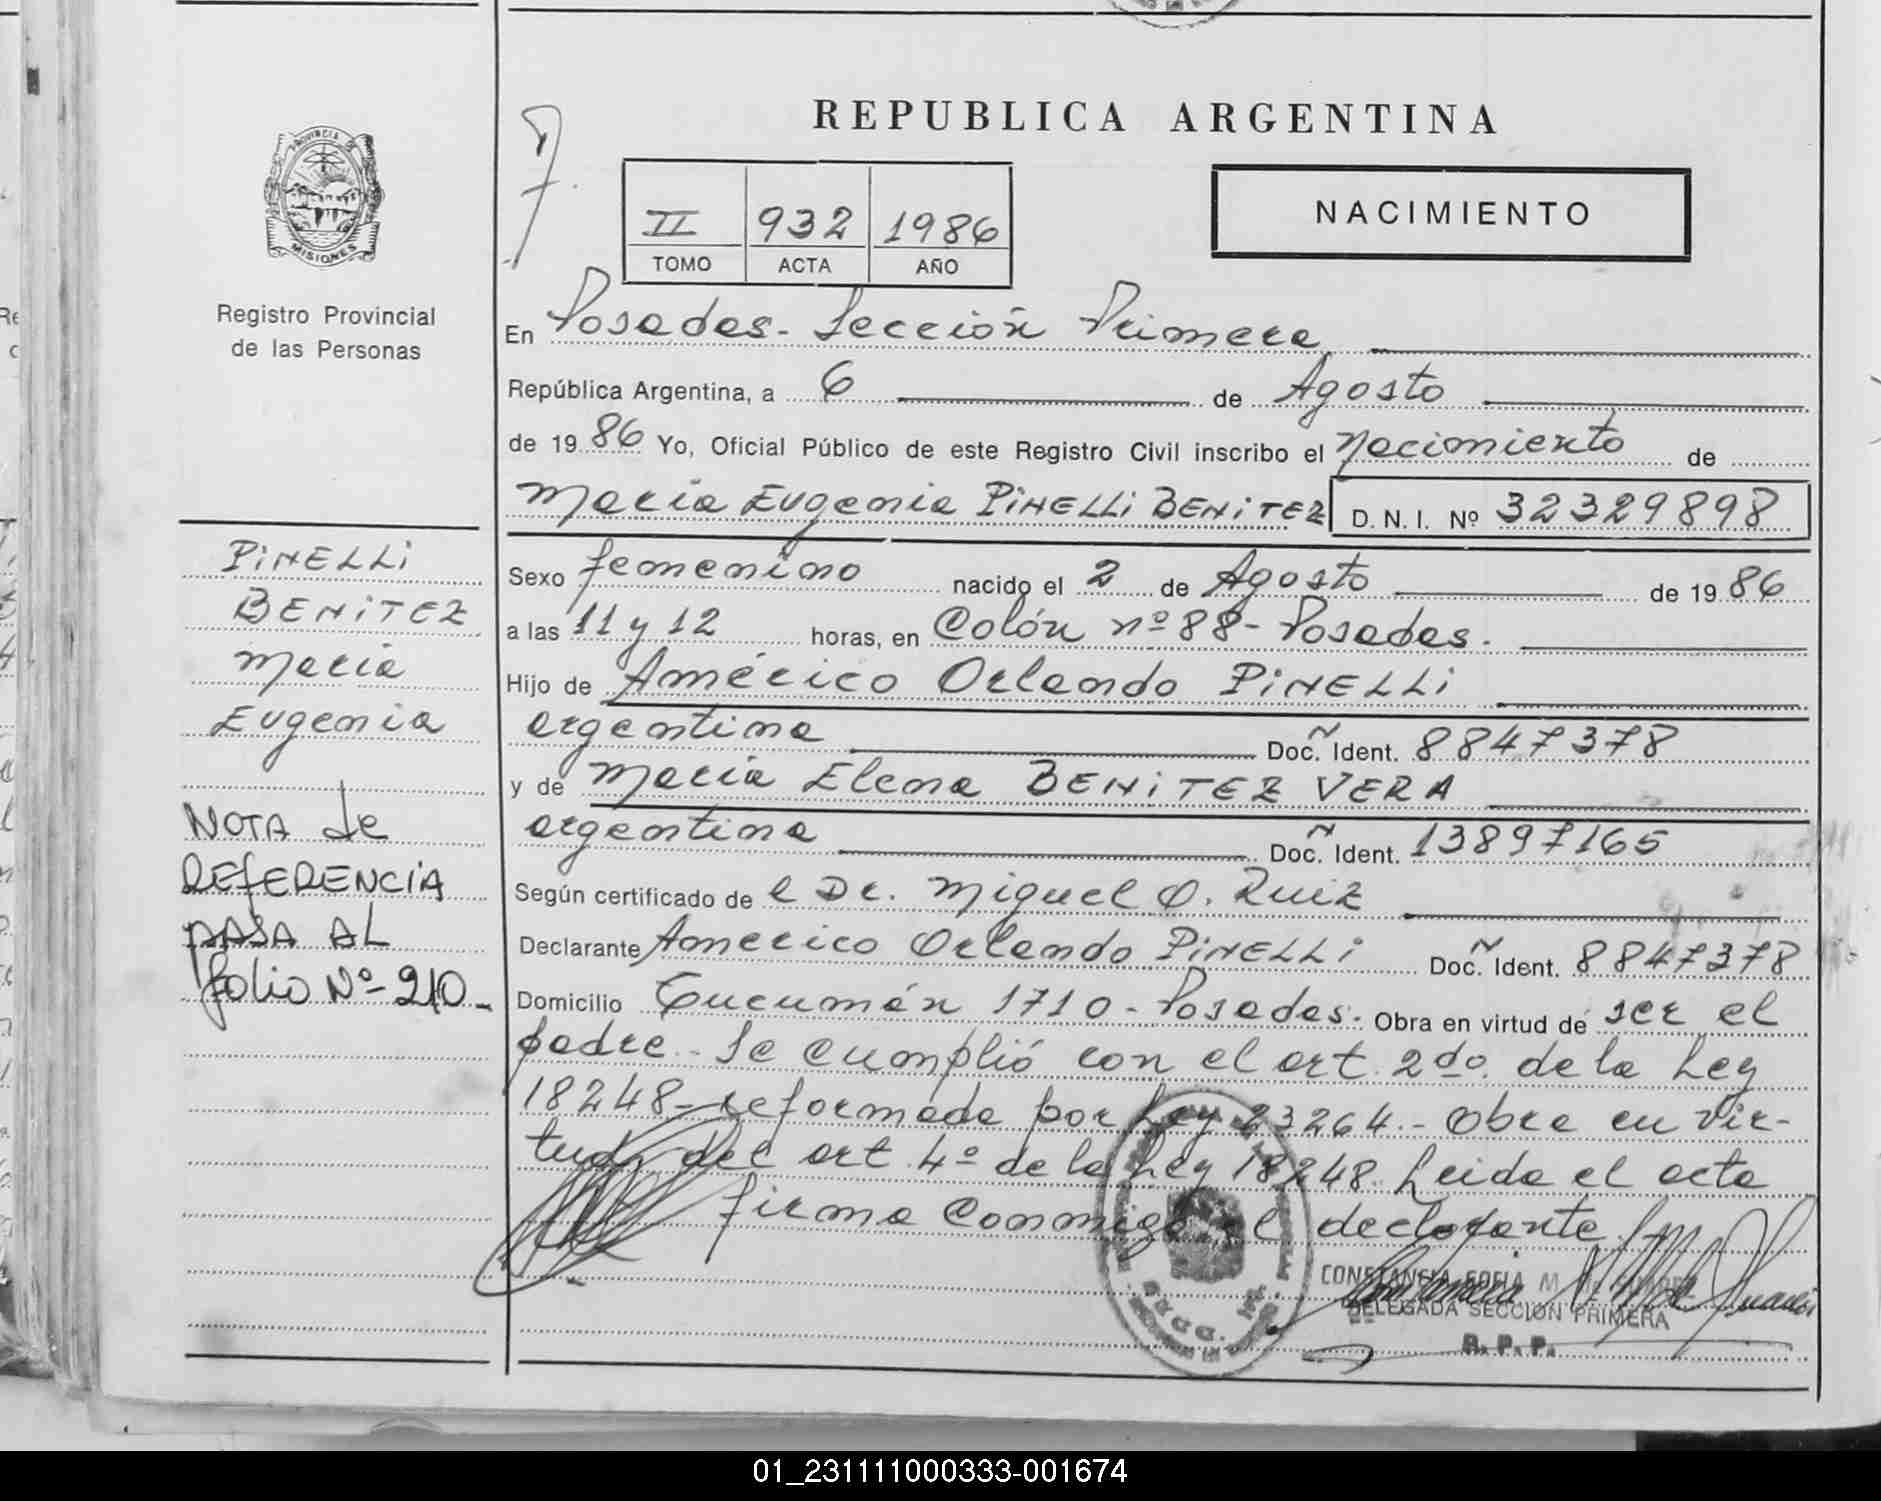 REPUBLICA ARGENTINA
PROVINCIA DE
MISIONES
Registro Provincial
de las Personas
II 932 1986
TOMO ACTA AÑO
NACIMIENTO
En Posadas - Sección Primera
República Argentina, a 6 de Agosto
de 1986 Yo, Oficial Público de este Registro Civil inscribo el Nacimiento de
María Eugenia PINELLI BENITEZ D. N. I. Nº 32329898
Sexo femenino nacido el 2 de Agosto de 1986
a las 11 y 12 horas, en Colón nº 88 - Posadas.
Hijo de Américo Orlando PINELLI
argentina Doc. Ident. 8847378
y de María Elena BENITEZ VERA
argentina Doc. Ident. 13897165
Según certificado de l Dr. Miguel O. Ruiz
Declarante Americo Orlando PINELLI Doc. Ident. 8847378
Domicilio Tucumán 1710 - Posadas. Obra en virtud de ser el
padre. - Se cumplió con el art. 2do. de la Ley
18248 - reformada por Ley 23264. - Obra en vir-
tud del art. 4º de la Ley 18248. Leida el acta
firma conmigo el declarante.
CONSTANCIA SOFIA M
DELEGADA SECCION PRIMERA
R. P. P.
PINELLI
BENITEZ
María
Eugenia
NOTA de
REFERENCIA
PASA AL
folio Nº - 210 -
01_231111000333-001674